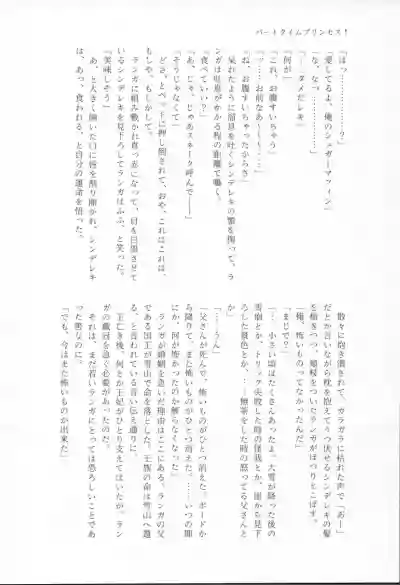 パートタイムプリンセス!
「はっ………?」
「愛してるよ、俺のシュガーマフィン」
「な、なっ………」
「……ダメだレキ」
「何が」
「これ、お腹すいちゃう」
「……お前なあ〜〜……」
「ね、お腹すいちゃったからさ」
呆れたように溜息を吐くシンデレキの顎を掬って、ラ
ンガは吐息がかかる程の距離で囁く。
「食べていい?」
「あ、じゃ、じゃあスネーク呼んで――」
「そうじゃなくて」
どさ、とベッドに押し倒されて、おや、これはこれは、
もしや、もしかして。
ランガに組み敷かれ真っ赤になって、目を白黒させて
いるシンデレキを見下ろしてランガはふふ、と笑った。
「美味しそう」
あ、と大きく開いた口に唇を割り開かれ、シンデレキ
は、あっ、食われる、と自分の運命を悟った。
散々に抱き潰されて、ガラガラに枯れた声で「あー」
だとか言いながら枕を抱えてうつ伏せるシンデレキの髪
を梳きつつ、頬杖をついたランガがぽつりとこぼす。
「俺、怖いものってなかったんだ」
「まじで?」
「……小さい頃はたくさんあったよ。大雪が降った後の
雪崩とか、トリック失敗した時の怪我とか、崖から見下
ろした景色とか、……無茶をした時の怒ってる父さんと
か」
「……うん」
「父さんが死んで、怖いものがひとつ消えた。ボードか
ら降りて、また怖いものがひとつ消えた。……いつの間
にか、何が怖かったのか解らなくなった」
ランガが婚姻を急いだ理由はここにある。ランガの父
である国王が雪山で命を落とした。王族の命は雪山へ還
る、と言われている言い伝え通りに。
王亡き後、何とか王妃がひとり支えてはいたが、ラン
ガの戴冠を急ぐ必要があったのだ。
それは、まだ若いランガにとっては恐ろしいことであ
った筈なのに。
「でも、今はまた怖いものが出来た」